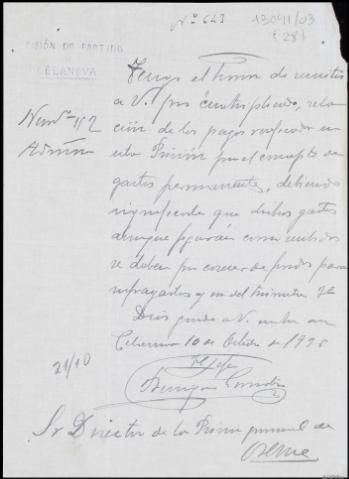 Nº 643
13041/03
(28)
PRISIÓN DE PARTIDO
CELANOVA
Tengo el honor de remitir
a V. por cuadruplicado, rela-
ción de los pagos verificados en
esta Prisión por el concepto de
gastos permanentes, debiendo
significarle que dichos gastos
aunque figuran como recibidos
se deben por carecer de fondos para
y en del trimestre
Numº 152
Admón
Dios guarde a V. muchos años
Celanova 10 de Octubre de 1936
El Jefe
21/10
Sr Director de la Prisión provincial de
Orense